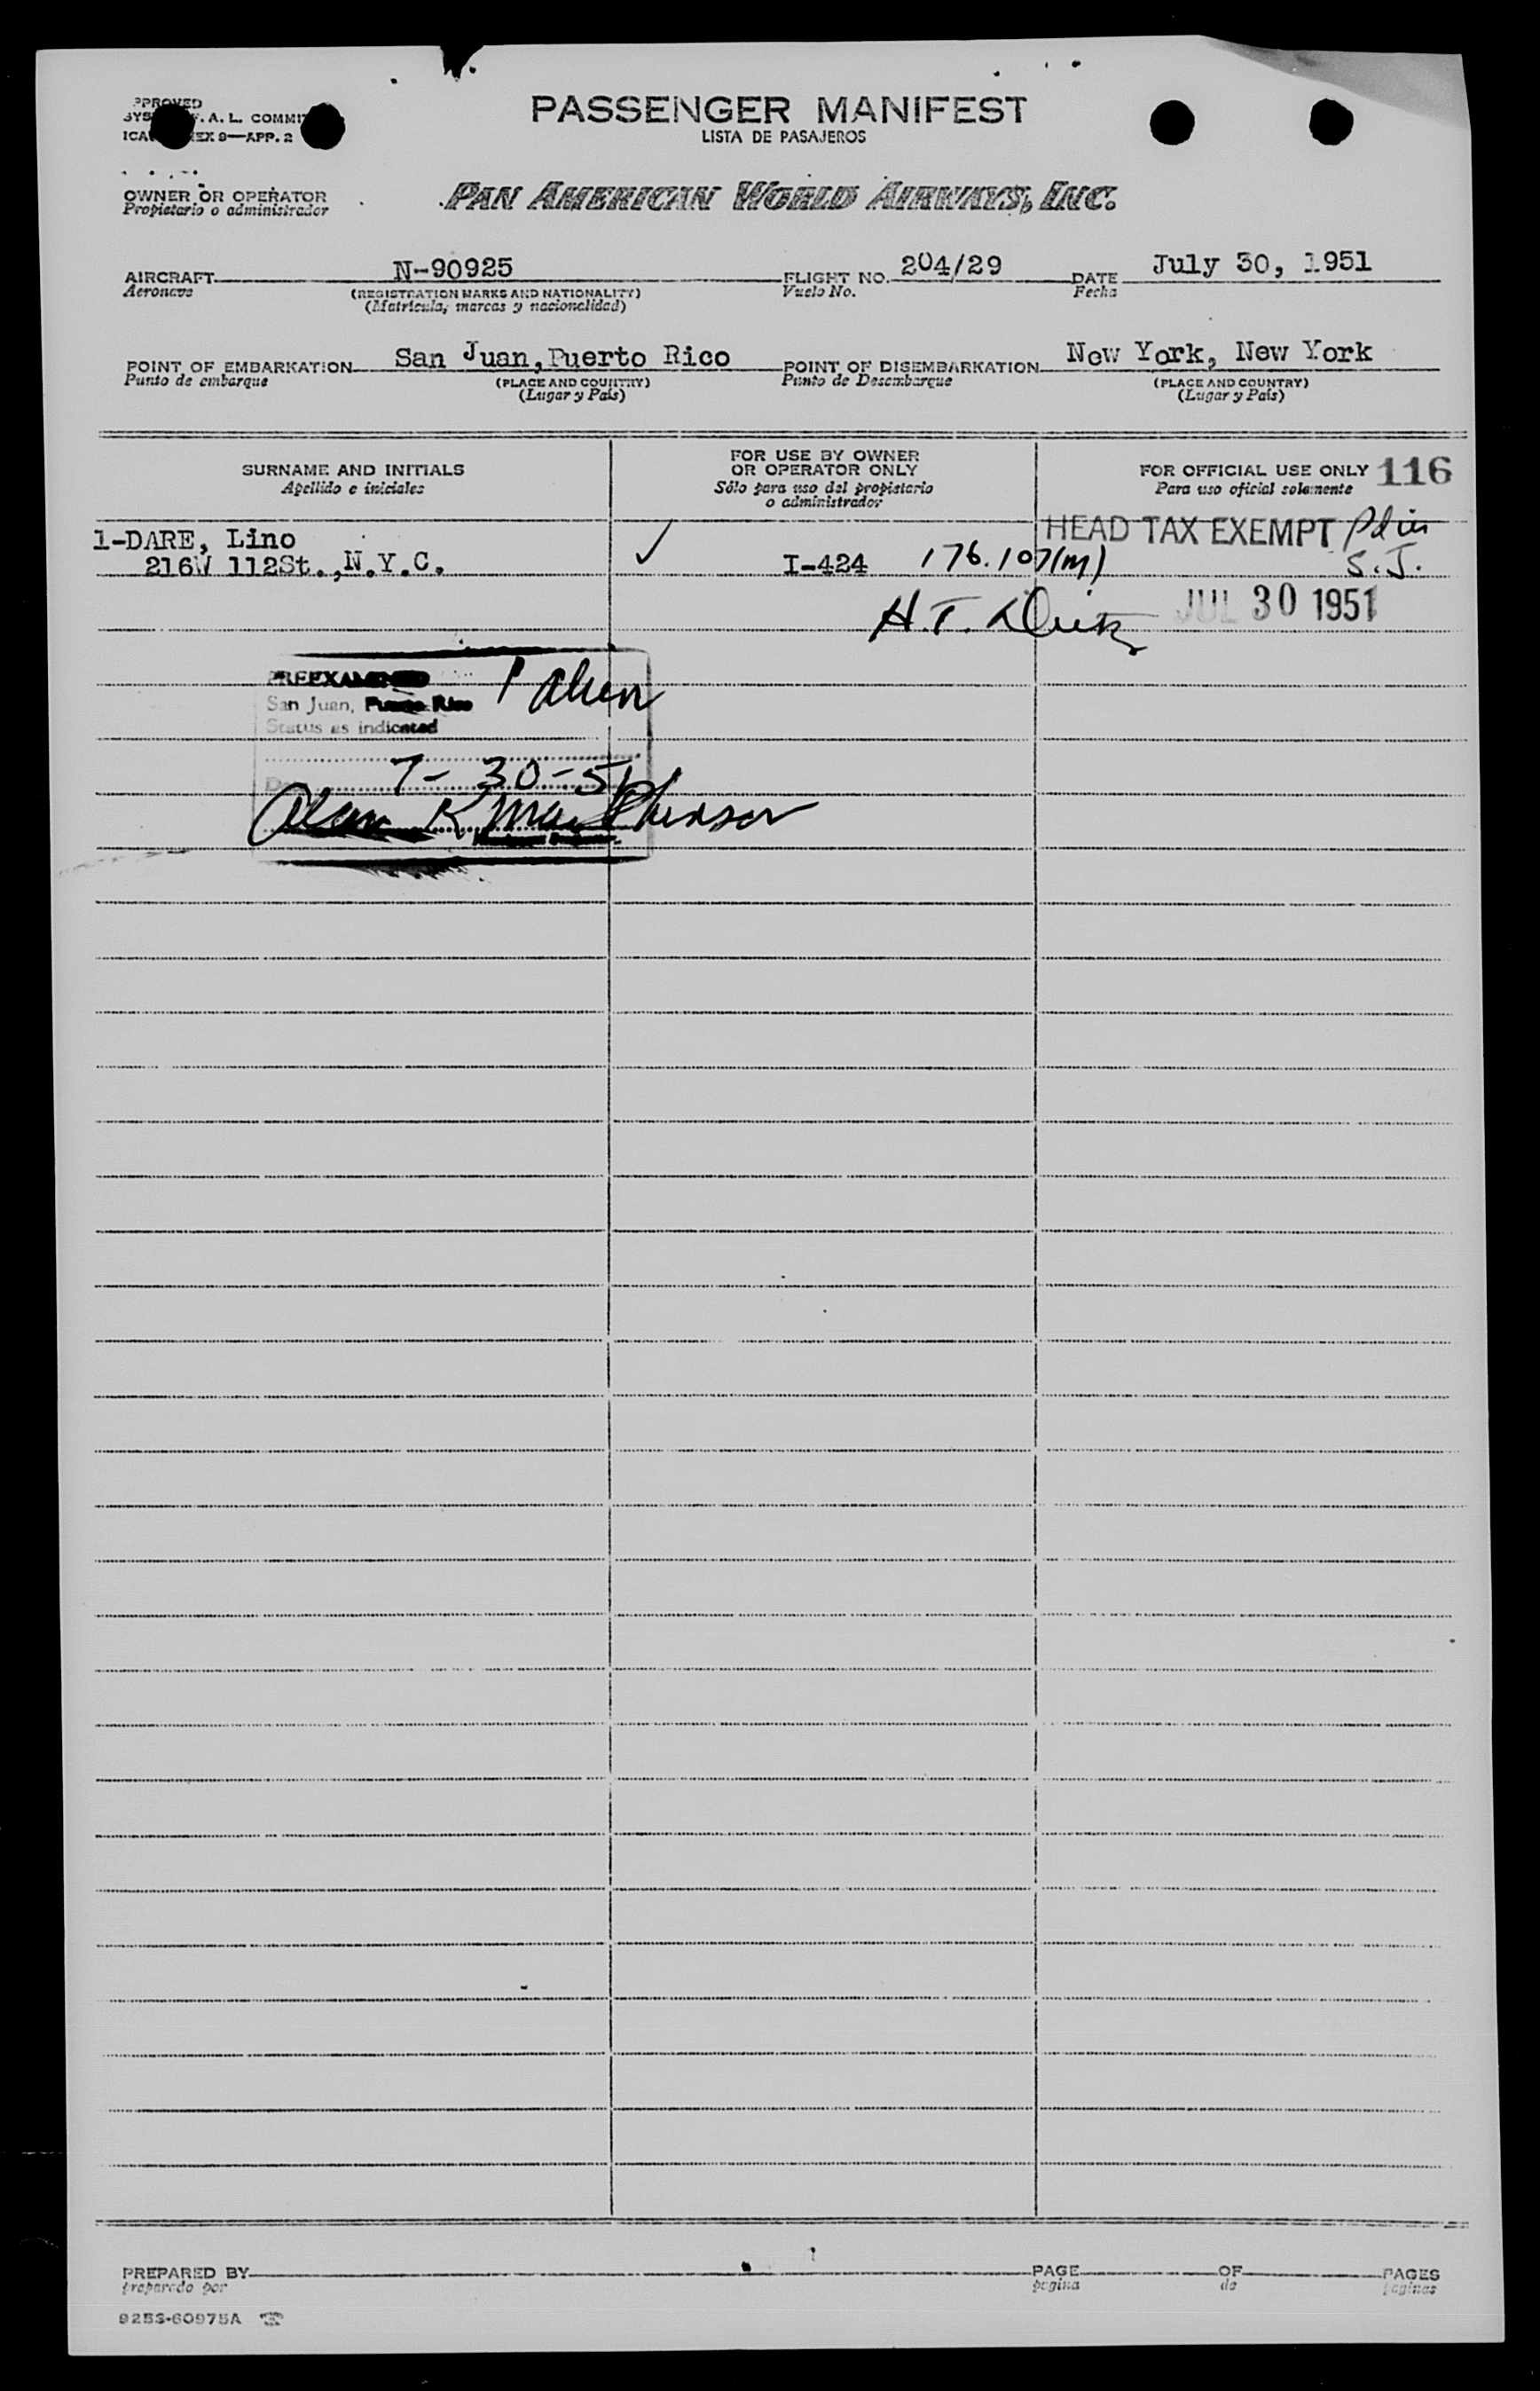 PPROVED
A. L. COMMIT
EX 9—APP. 2
PASSENGER MANIFEST
LISTA DE PASAJEROS
OWNER OR OPERATOR
Propietario o administrador
PAN AMERICAN WORLD AIRWAYS, INC.
AIRCRAFT N-90925 FLIGHT NO. 204/29 DATE July 30, 1951
Aeronave (REGISTRATION MARKS AND NATIONALITY) Vuelo No. Fecha
(Matricula, marcas y nacionalidad)
POINT OF EMBARKATION San Juan, Puerto Rico POINT OF DISEMBARKATION New York, New York
Punto de embarque (PLACE AND COUNTRY) Punto de Desembarque (PLACE AND COUNTRY)
(Lugar y País) (Lugar y País)
SURNAME AND INITIALS
Apellido e iniciales
FOR USE BY OWNER
OR OPERATOR ONLY
Sólo para uso del propietario
o administrador
FOR OFFICIAL USE ONLY 116
Para uso oficial solamente
1-DARE, Lino HEAD TAX EXEMPT Pd in
216W 112St., N.Y.C. ✓ I-424 176.107(m) S.J.
H.T. JUL 30 1951
PREEXAMINED 1 alien
San Juan, Puerto Rico
Status as indicated
7-30-51
PREPARED BY PAGE OF PAGES
preparado por pagina de paginas
9253-60975A